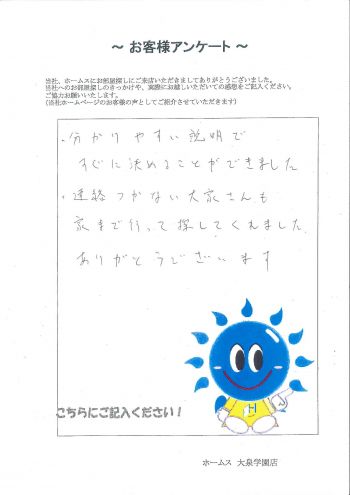 ～ お客様アンケート ～
当社、ホームスにお部屋探しにご来店いただきましてありがとうございました。
当社へのお部屋探しのきっかけや、実際にお越しいただいての感想をご記入ください。
ご協力お願いいたします。
(当社ホームページのお客様の声としてご紹介させていただきます)
・分かりやすい説明で
すぐに決めることができました
・連絡つかない大家さんも
家まで行って探してくれました。
ありがとうございます
H
こちらにご記入ください！
ホームス 大泉学園店